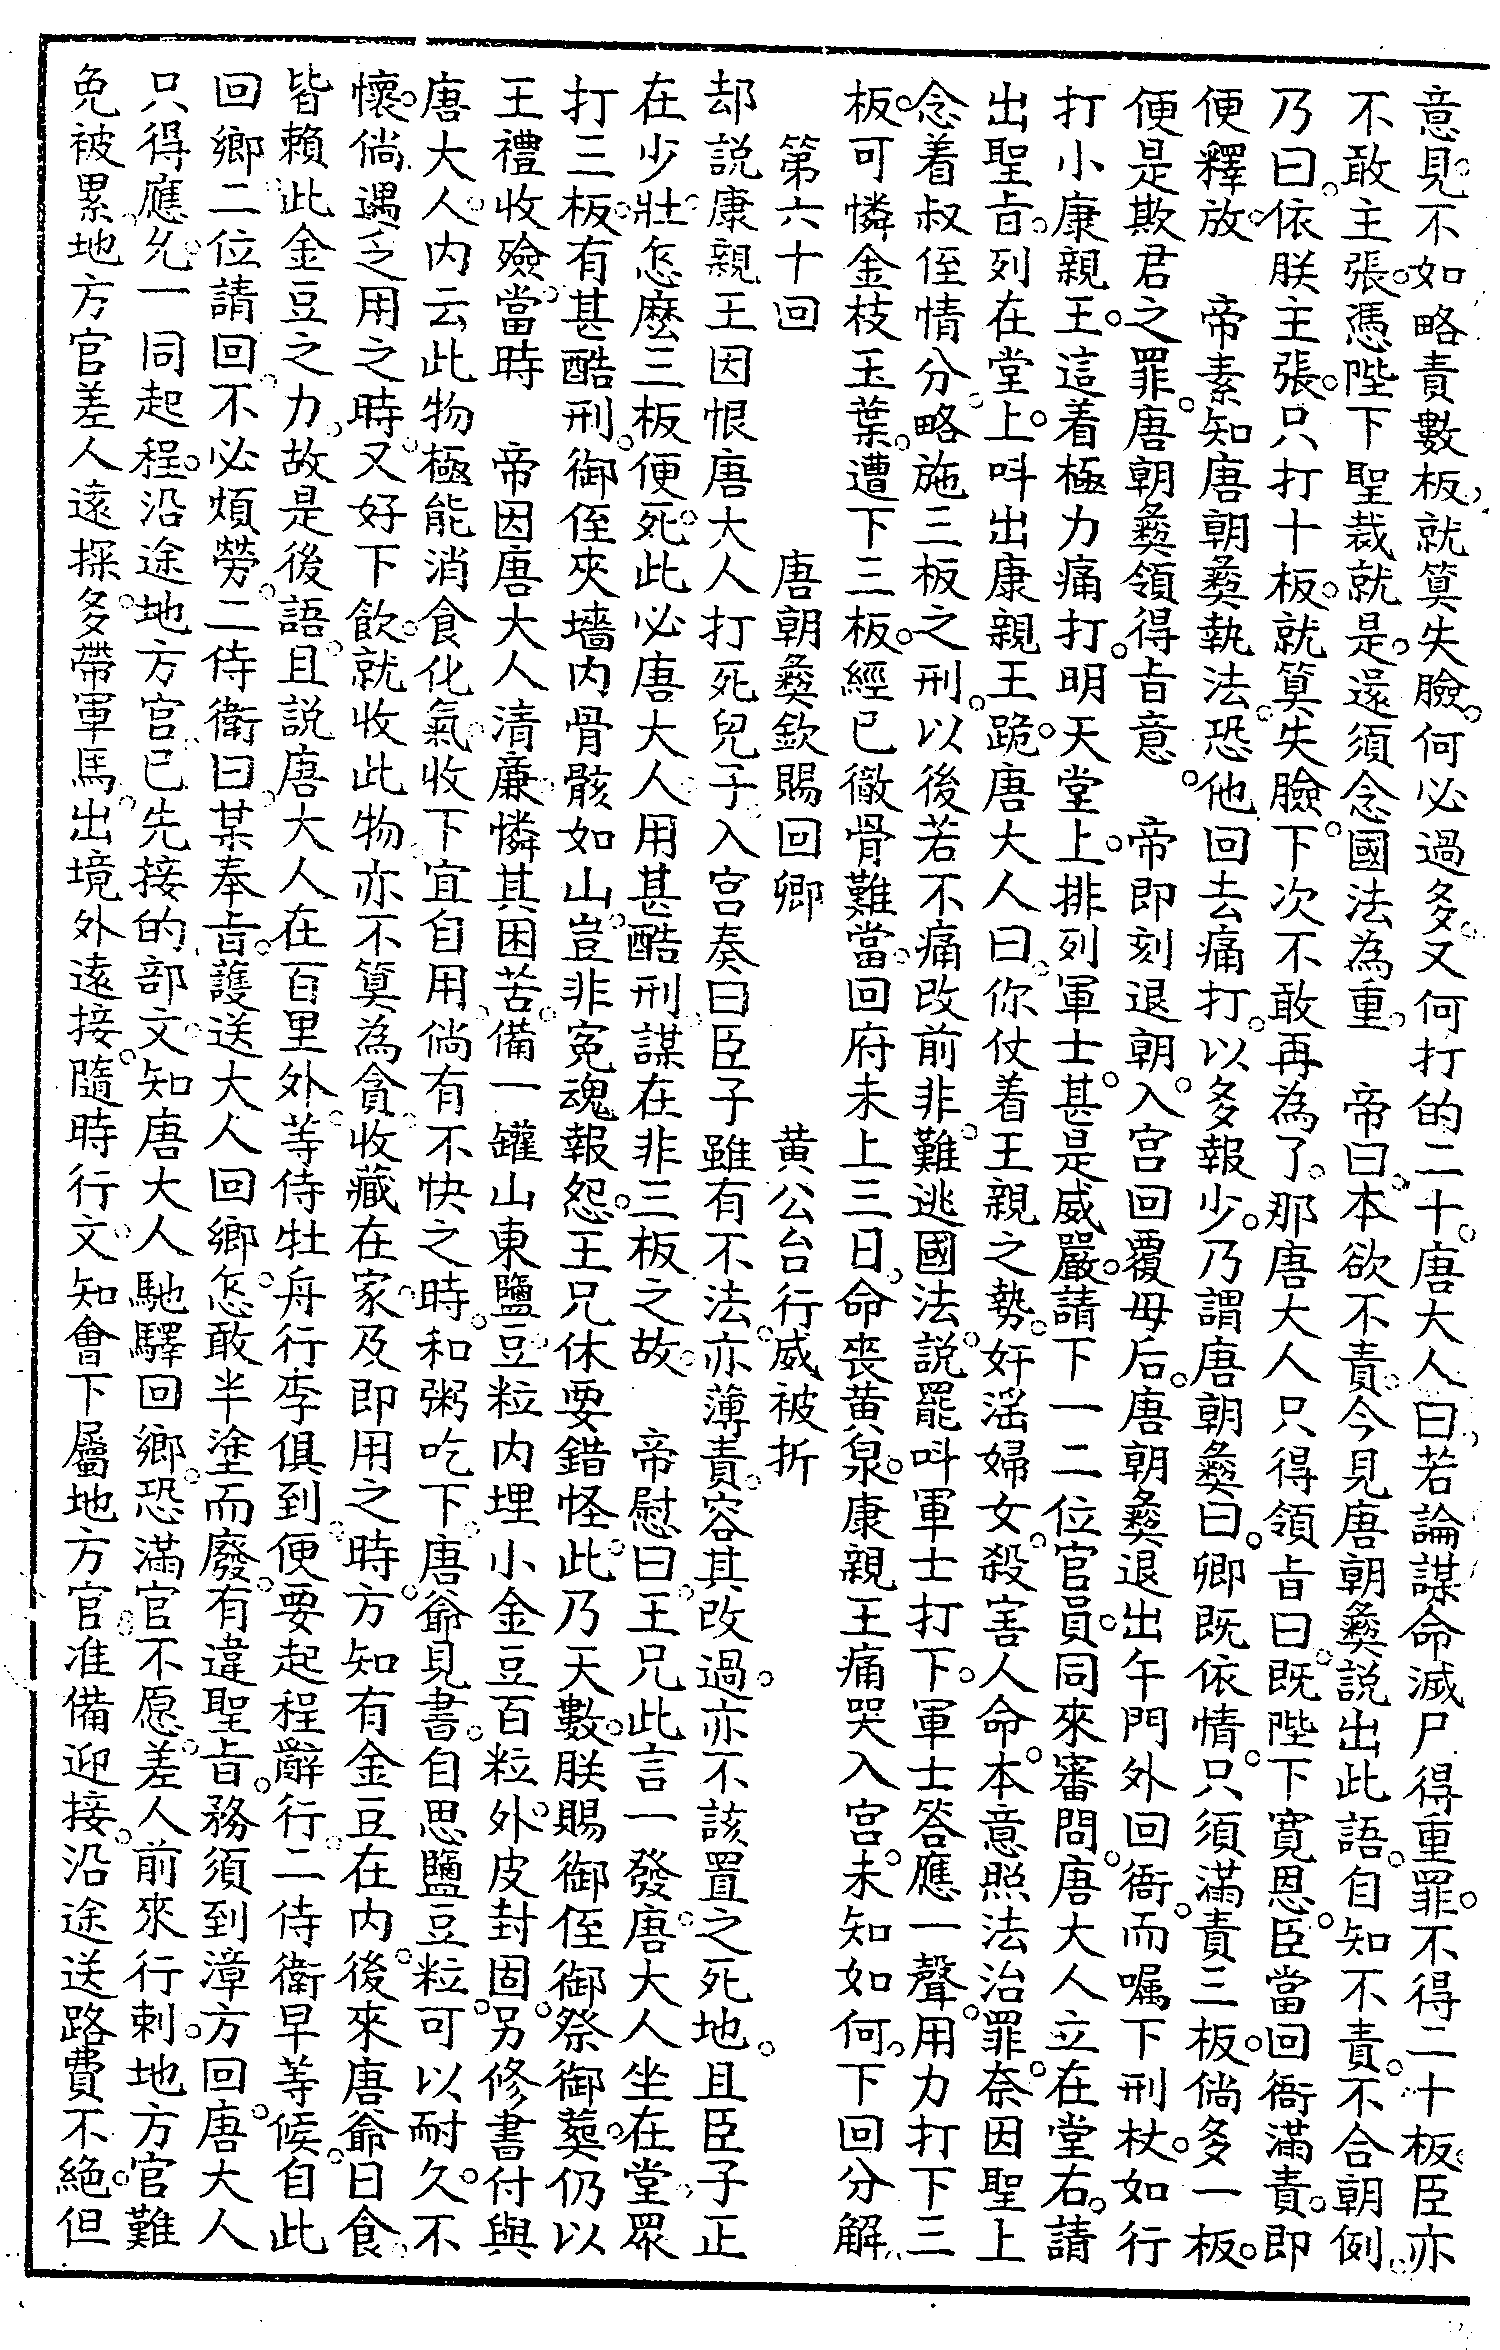 意見不如略責數板就筭失臉何必過多又何打的二十唐大人曰若論謀命滅尸得重罪不得二十板臣亦
不敢主張憑陛下聖裁就是還須念國法為重　帝曰本欲不責今見唐朝彝説出此語自知不責不合朝例
乃曰依朕主張只打十板就筭失臉下次不敢再為了那唐大人只得領旨曰既陛下寬恩臣當回衙滿責即
便釋放　帝素知唐朝彝執法恐他回去痛打以多報少乃謂唐朝彝曰卿既依情只須滿責三板倘多一板
便是欺君之罪唐朝彝領得旨意　帝即刻退朝入宮回覆母后唐朝彝退出午門外回衙而嘱下刑杖如行
打小康親王這着極力痛打明天堂上排列軍士甚是威嚴請下一二位官員同來審問唐大人立在堂右請
出聖旨列在堂上呌出康親王跪唐大人曰你仗着王親之勢奸滛婦女殺害人命本意照法治罪奈因聖上
念着叔侄情分略施三板之刑以後若不痛改前非難逃國法説罷呌軍士打下軍士答應一聲用力打下三
板可憐金枝玉葉遭下三板經已徹骨難當回府未上三日命喪黃泉康親王痛哭入宮未知如何下回分解
第六十回　唐朝彝欽賜回鄉　黃公台行威被折
却説康親王因恨唐大人打死兒子入宮奏曰臣子雖有不法亦薄責容其改過亦不該置之死地且臣子正
在少壯怎麼三板便死此必唐大人用甚酷刑謀在非三板之故　帝慰曰王兄此言一發唐大人坐在堂眾
打三板有甚酷刑御侄夾墻内骨骸如山豈非冤魂報怨王兄休要錯怪此乃天數朕賜御侄御祭御葬仍以
王禮收殮當時　帝因唐大人清廉憐其困苦備一罐山東鹽豆粒内埋小金豆百粒外皮封固另修書付與
唐大人内云此物極能消食化氣收下宜自用倘有不快之時和粥吃下唐爺見書自思鹽豆粒可以耐久不
懷倘遇乏用之時又好下飲就收此物亦不筭為貪收藏在家及即用之時方知有金豆在内後來唐爺日食
皆賴此金豆之力故是後語且説唐大人在百里外等侍牡舟行李俱到便要起程辭行二侍衛早等候自此
回鄉二位請回不必煩勞二侍衛曰某奉旨護送大人回鄉怎敢半塗而廢有違聖旨務須到漳方回唐大人
只得應允一同起程沿途地方官已先接的部文知唐大人馳驛回鄉恐滿官不愿差人前來行刺地方官難
免被累地方官差人遠探多帶軍馬出境外遠接隨時行文知會下屬地方官准備迎接沿途送路費不絶但